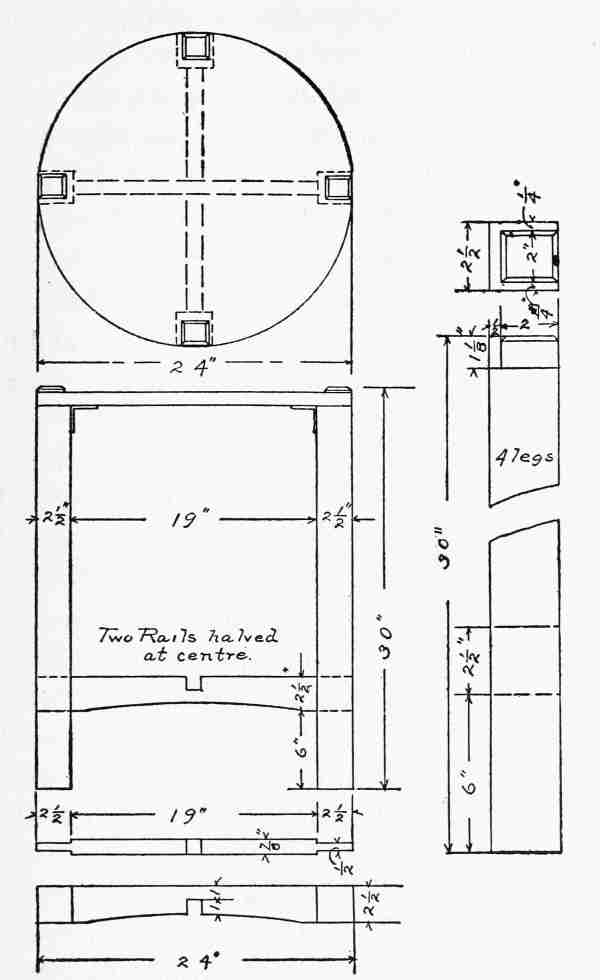 24"
2½"
19"
2½"
30"
Two Rails halved
at centre.
2½"
6"
2½
19"
2½
⅞"
½
1
1
2½
24"
¼"
2½
2"
¼"
½
2
1⅛"
4 legs
30"
2½"
6"